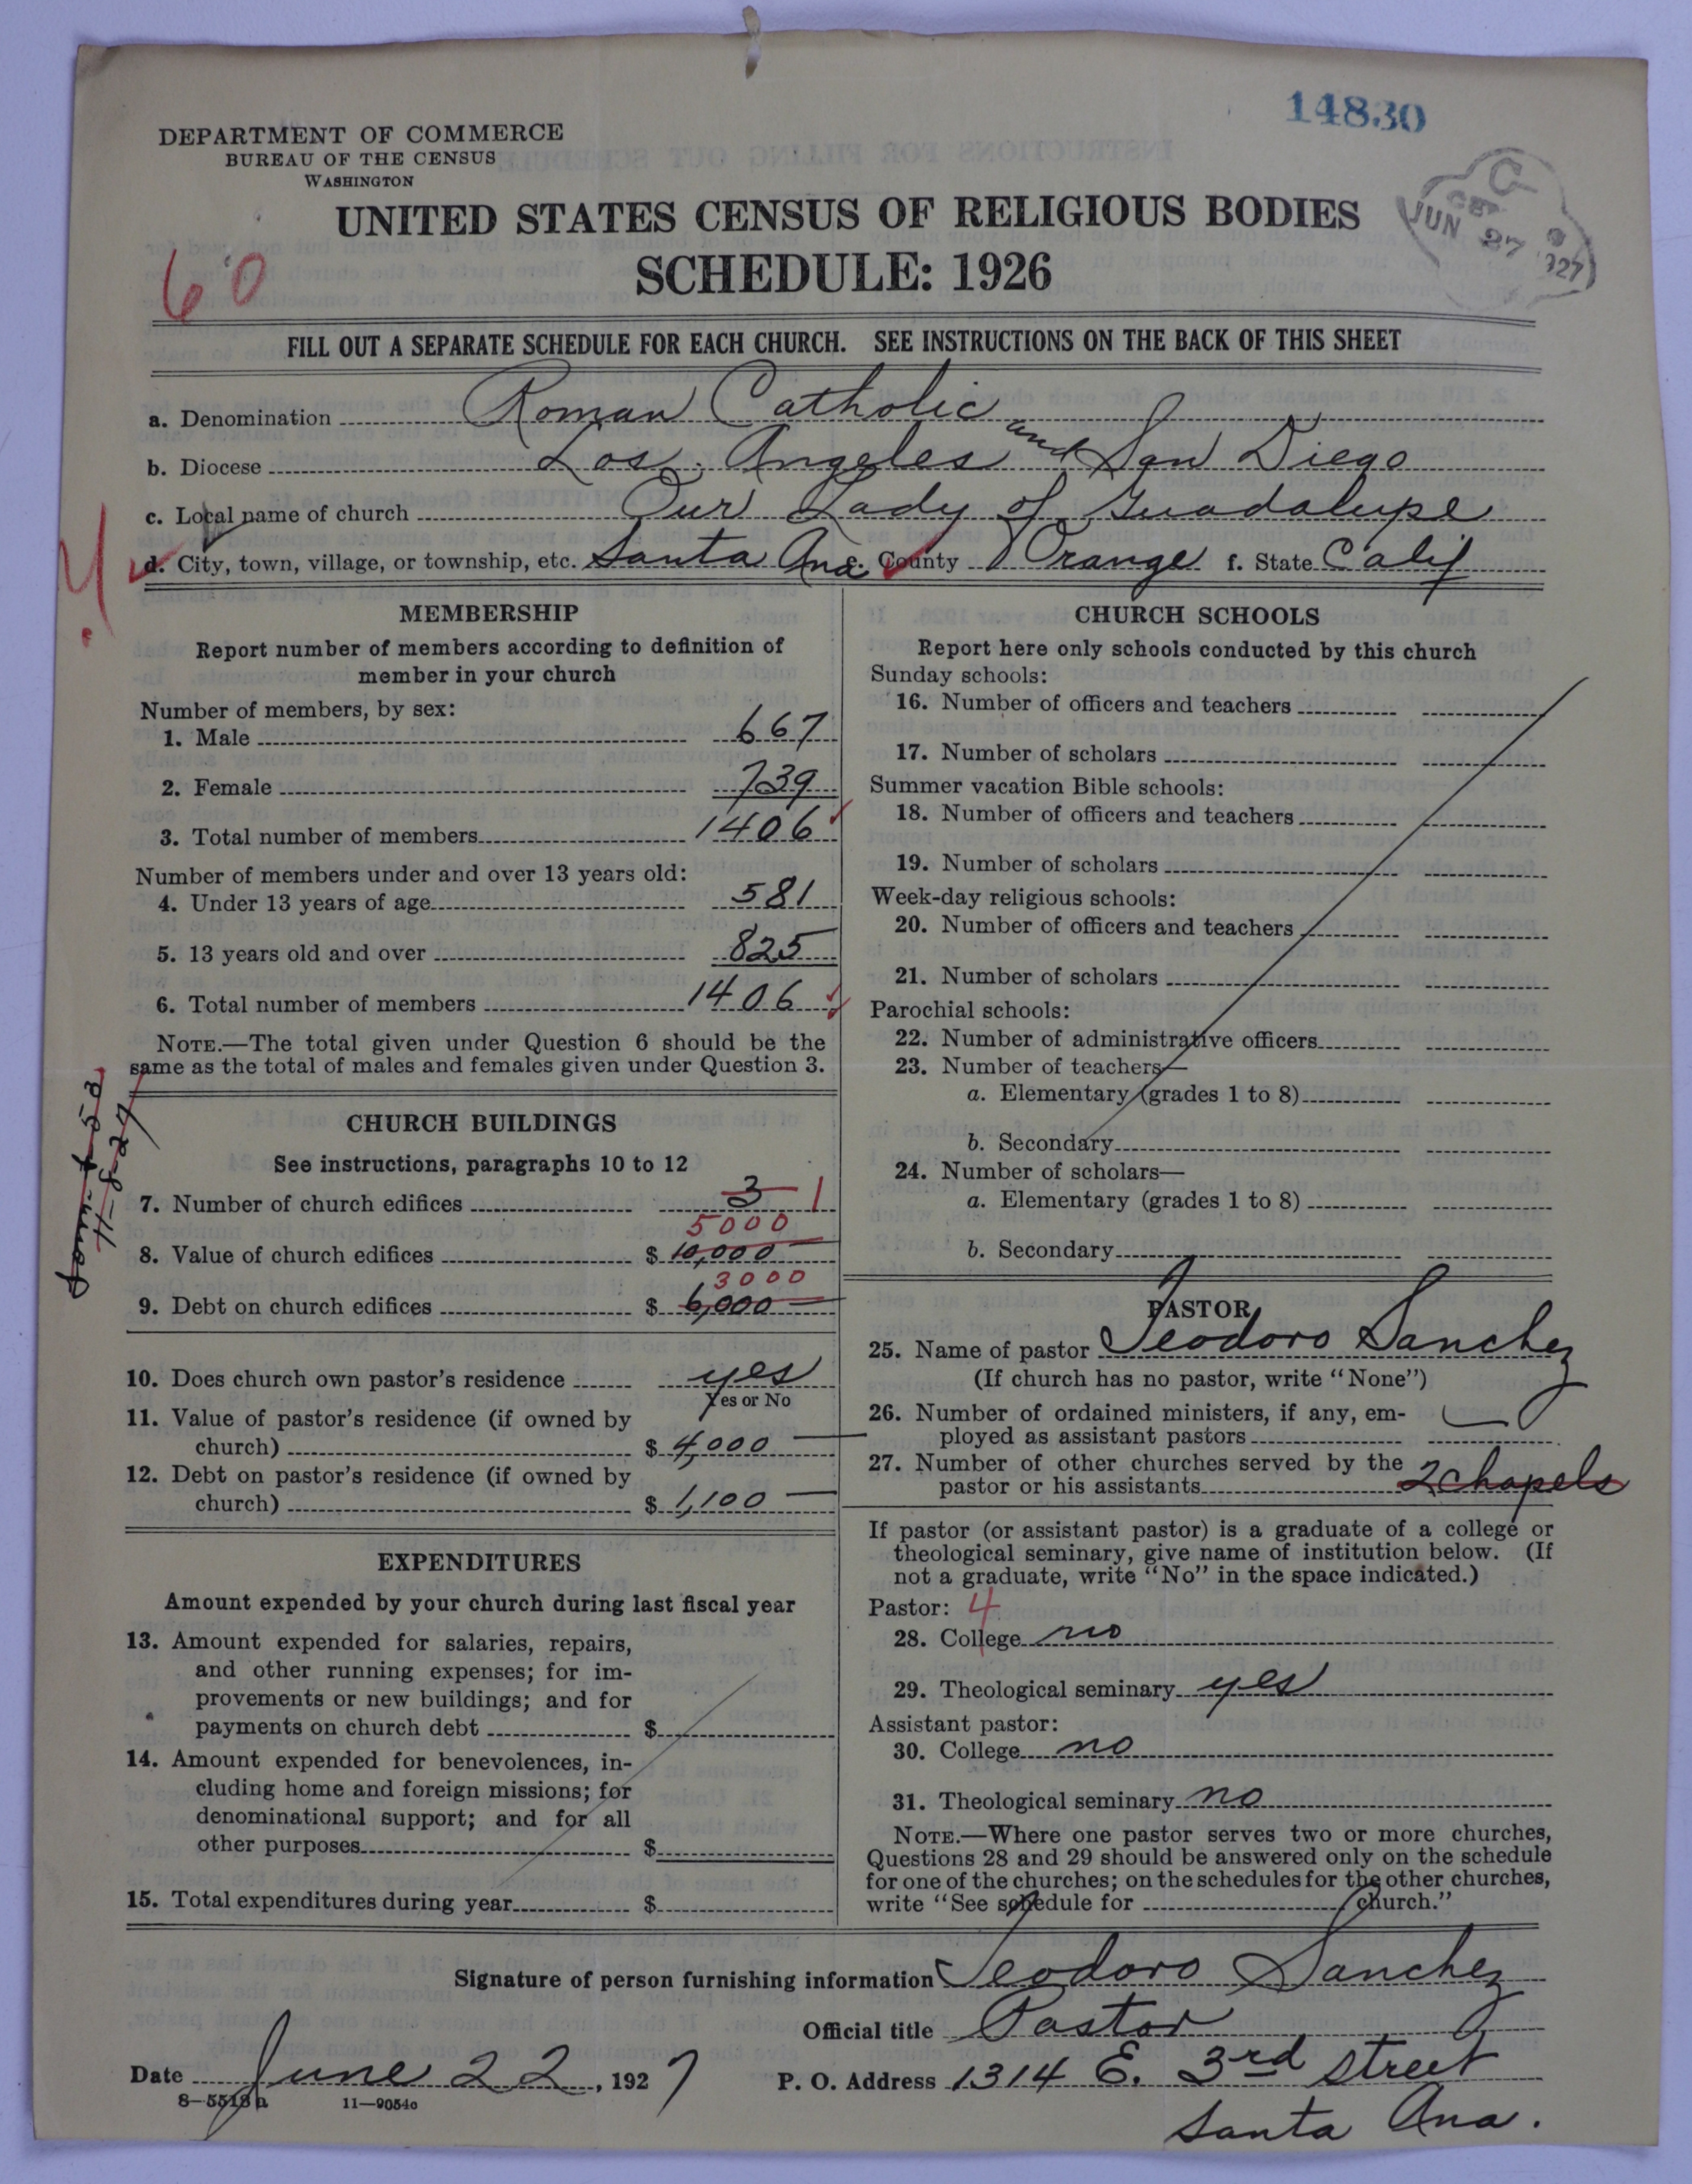 14830
DEPARTMENT OF COMMERCE
BUREAU OF THE CENSUS
WASHINGTON
UNITED STATES CENSUS OF RELIGIOUS BODIES
SCHEDULE: 1926
JUN 27 1927
60
FILL OUT A SEPARATE SCHEDULE FOR EACH CHURCH. SEE INSTRUCTIONS ON THE BACK OF THIS SHEET
a. Denomination Roman Catholic
b. Diocese Los Angeles and San Diego
c. Local name of church Our Lady of Guadalupe
d. City, town, village, or township, etc. Santa Ana e. County Orange f. State Calif
MEMBERSHIP
Report number of members according to definition of
member in your church
Number of members, by sex:
1. Male 667
2. Female 739
3. Total number of members 1406
Number of members under and over 13 years old:
4. Under 13 years of age 581
5. 13 years old and over 825
6. Total number of members 1406
NOTE.—The total given under Question 6 should be the
same as the total of males and females given under Question 3.
CHURCH BUILDINGS
See instructions, paragraphs 10 to 12
7. Number of church edifices 3 1
5000
8. Value of church edifices $ 10,000
3000
9. Debt on church edifices $ 6,000
10. Does church own pastor's residence yes
Yes or No
11. Value of pastor's residence (if owned by
church) $ 4,000
12. Debt on pastor's residence (if owned by
church) $ 1,100
EXPENDITURES
Amount expended by your church during last fiscal year
13. Amount expended for salaries, repairs,
and other running expenses; for im-
provements or new buildings; and for
payments on church debt $
14. Amount expended for benevolences, in-
cluding home and foreign missions; for
denominational support; and for all
other purposes $
15. Total expenditures during year $
CHURCH SCHOOLS
Report here only schools conducted by this church
Sunday schools:
16. Number of officers and teachers
17. Number of scholars
Summer vacation Bible schools:
18. Number of officers and teachers
19. Number of scholars
Week-day religious schools:
20. Number of officers and teachers
21. Number of scholars
Parochial schools:
22. Number of administrative officers
23. Number of teachers—
a. Elementary (grades 1 to 8)
b. Secondary
24. Number of scholars—
a. Elementary (grades 1 to 8)
b. Secondary
PASTOR
25. Name of pastor Teodoro Sanchez
(If church has no pastor, write "None")
26. Number of ordained ministers, if any, em-
ployed as assistant pastors
27. Number of other churches served by the
pastor or his assistants 2 chapels
If pastor (or assistant pastor) is a graduate of a college or
theological seminary, give name of institution below. (If
not a graduate, write "No" in the space indicated.)
Pastor: 4
28. College no
29. Theological seminary yes
Assistant pastor:
30. College no
31. Theological seminary no
NOTE.—Where one pastor serves two or more churches,
Questions 28 and 29 should be answered only on the schedule
for one of the churches; on the schedules for the other churches,
write "See schedule for church."
Signature of person furnishing information Teodoro Sanchez
Official title Pastor
Date June 22, 1927
P. O. Address 1314 E. 3rd street
Santa Ana.
8-5518a 11—9054c